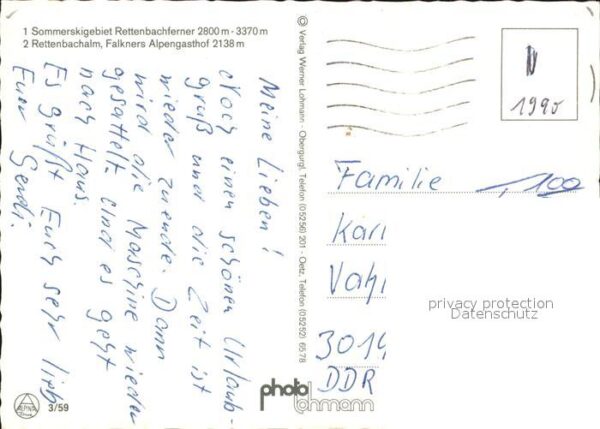 1 Sommerskigebiet Rettenbachferner 2800 m - 3370 m
2 Rettenbachalm, Falkners Alpengasthof 2138 m
Meine Lieben!
Noch einen schönen Urlaub-
gruß und die Zeit ist
wieder zuende. Dann
wird die Maschine wieder
gesattelt und es geht
nach Haus.
Es grüßt Euch sehr lieb
Euer Gerdi.
3/59
© Verlag Werner Lohmann · Obergurgl, Telefon (05256) 201 - Oetz, Telefon (05252) 6578
N
1990
Familie
,100
Karl
3014
DDR
privacy protection
Datenschutz
photo
lohmann